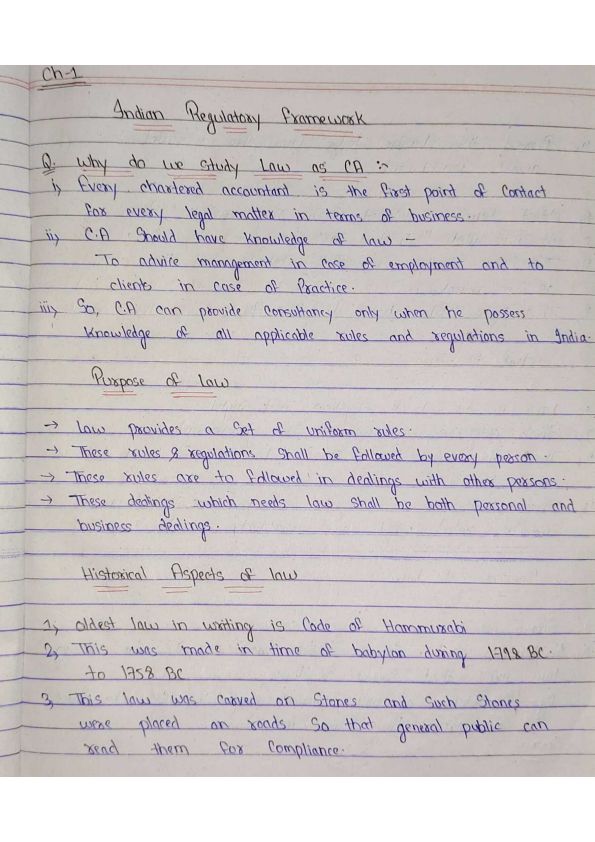 Ch-1
Indian Regulatory framework
Q. Why do we study Law as CA :-
i) Every chartered accountant is the first point of contact
for every legal matter in terms of business.
ii) C.A should have knowledge of law -
To advice management in case of employment and to
clients in case of Practice.
iii) So, C.A can provide consultancy only when he possess
knowledge of all applicable rules and regulations in India.
Purpose of law
→ law provides a set of uniform rules.
→ These rules & regulations shall be followed by every person.
→ These rules are to followed in dealings with other persons.
→ These dealings which needs law shall be both personal and
business dealings.
Historical Aspects of law
1) oldest law in writing is Code of Hammurabi
2) This was made in time of babylon during 1792 BC.
to 1758 BC
3) This law was carved on Stones and Such Stones
were placed on roads so that general public can
read them for Compliance.